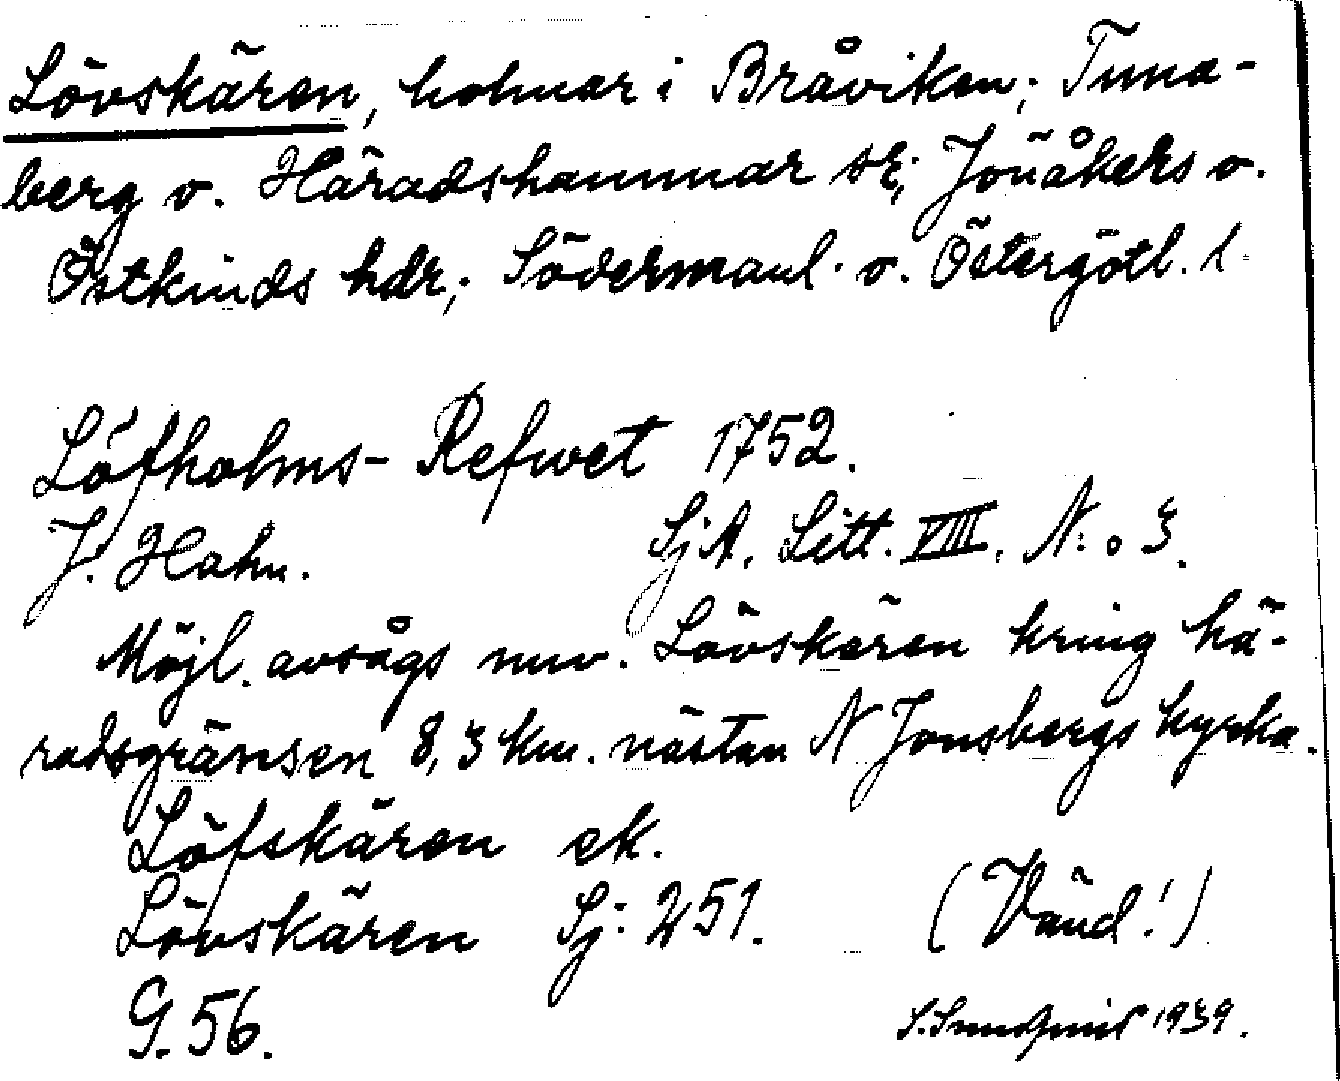 Lövskären, holmar i Bråviken; Tuna-
berg o. Häradshammar sr; Jönåkers o.
Östkinds hdr; Södermanl. o. Östergötl. l
Löfholms-Refwet 1752.
J. Hahn. SjA. Litt. VIII. N:o 3.
Möjl. avsågs nuv. Lövskären kring hä-
radsgränsen 8,3 km. nästan N Jonsbergs kyrka.
Löfskären ek.
Lövskären Sj: 251. (Vänd!)
G. 56.
S. Sundqvist 1939.